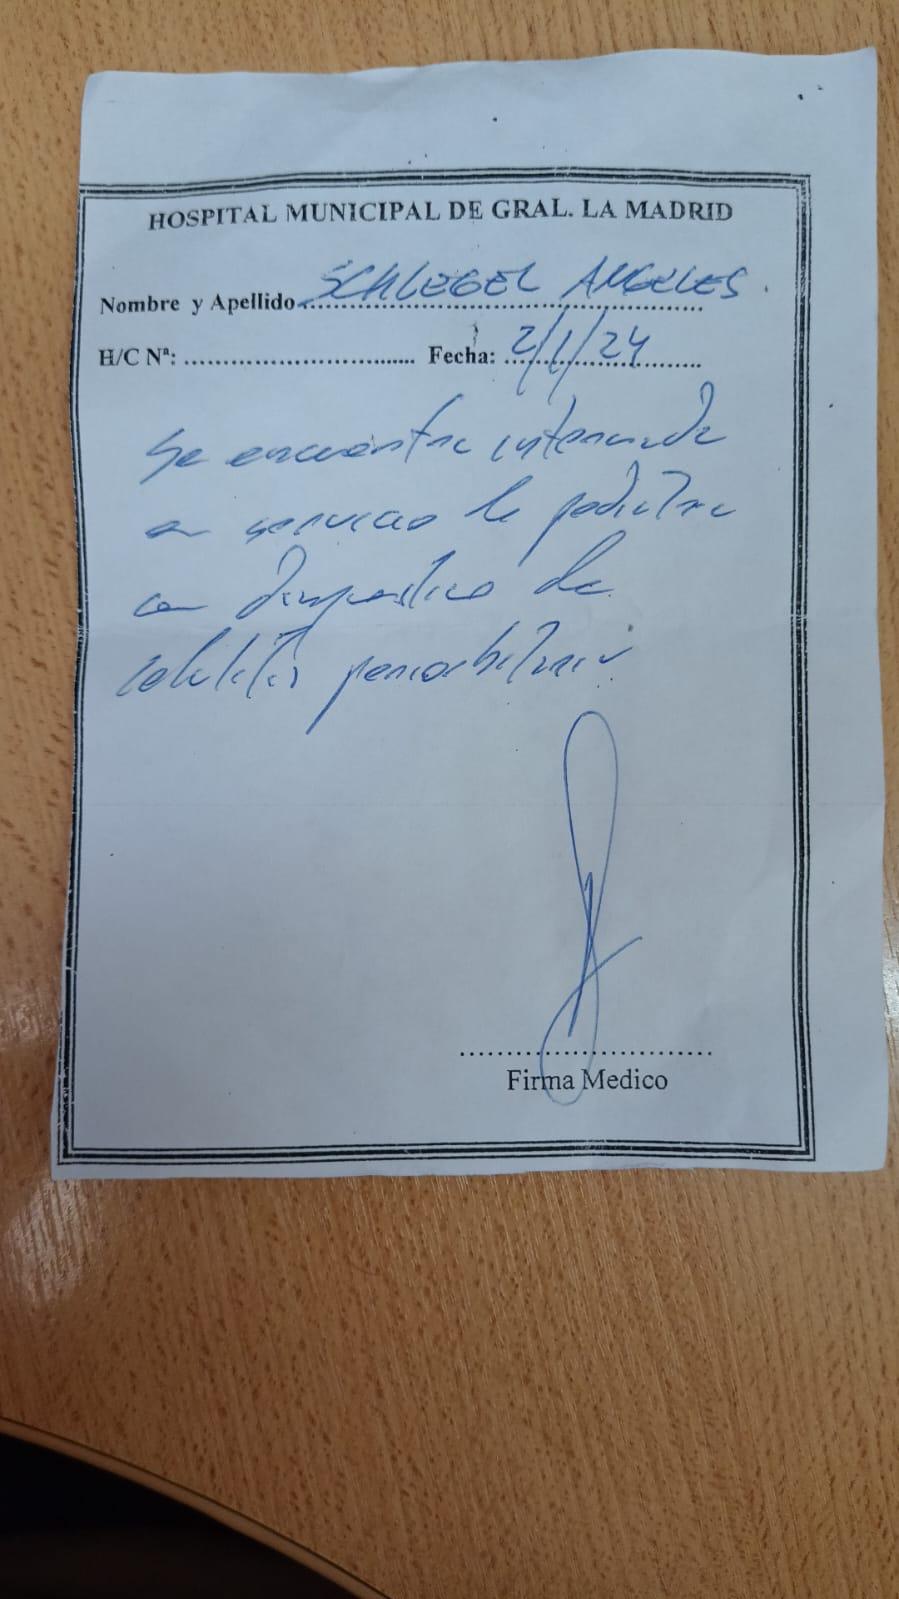 HOSPITAL MUNICIPAL DE GRAL. LA MADRID
Nombre y Apellido SCHLEGEL ANGELES
H/C Nª: ........................... Fecha: 2/1/24
Se encuentra internada
en servicio de pediatria
con diagnostico de
celulitis periorbitaria.
Firma Medico